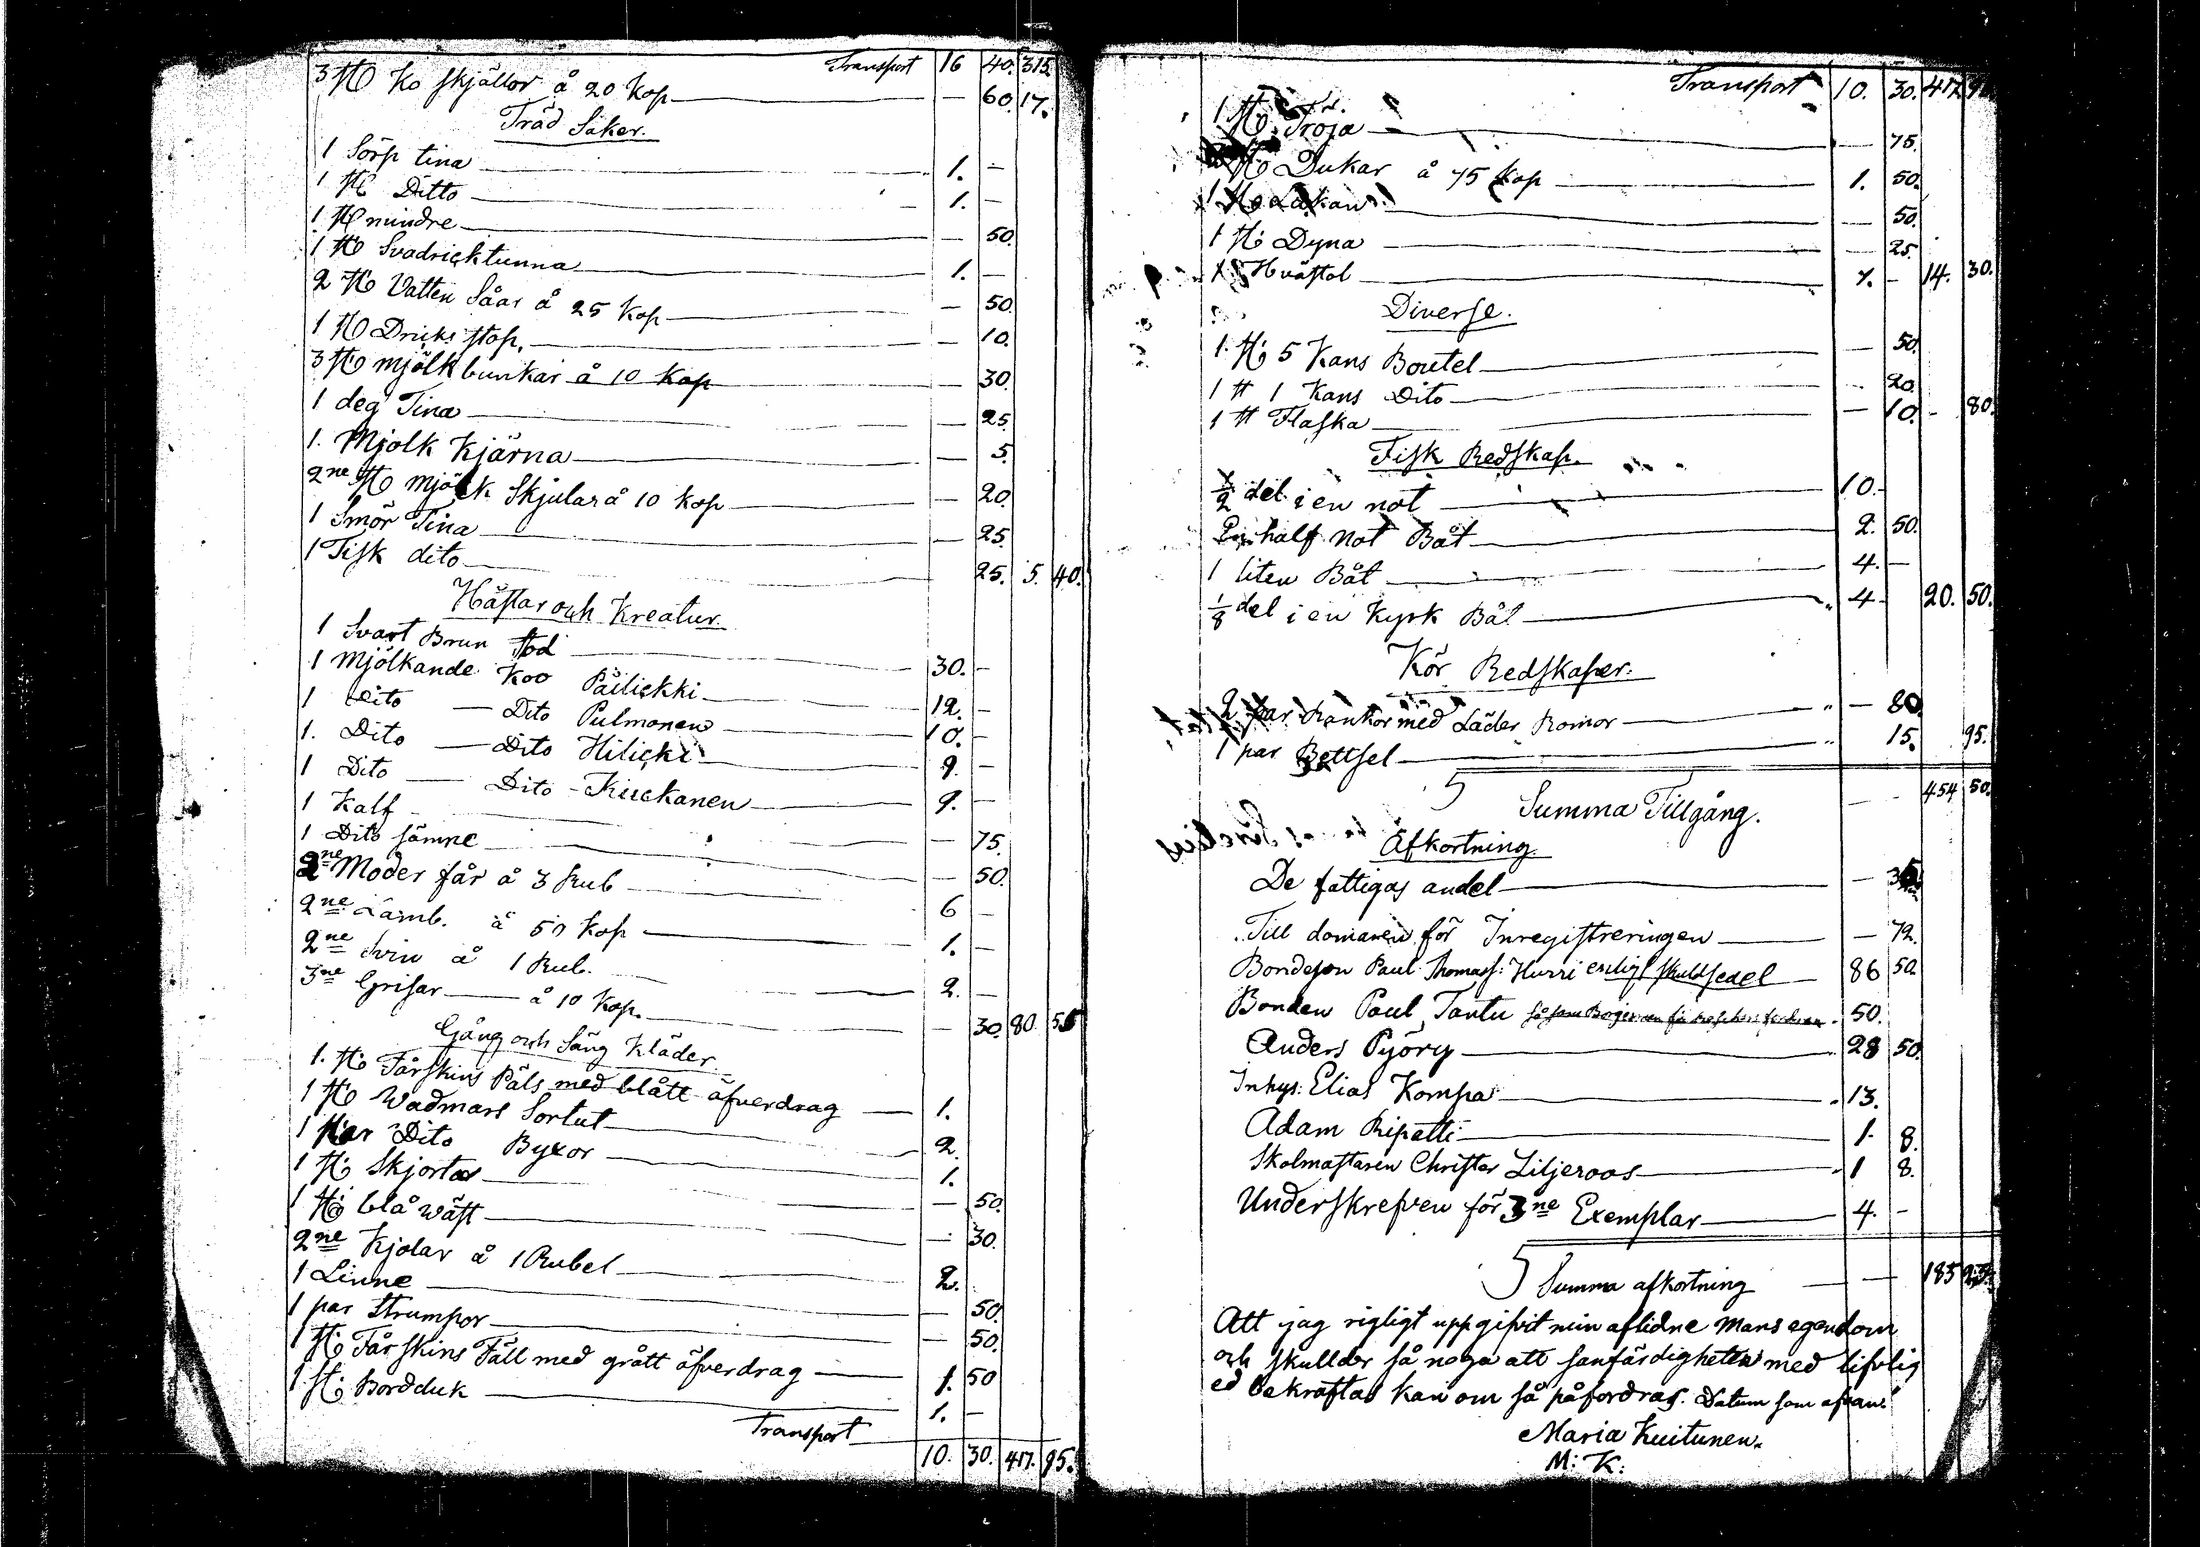 Transport 16 40. 315.
3 St Ko skjällor å 20 Kop — 60. 17.
Träd Saker.
1 Sörp tina 1. —
1 St Ditto 1. —
1 St mindre — 50.
1 St Svadricktunna 1. —
2 St Vatten Såar å 25 Kop — 50.
1 St Dricks stop. — 10.
3 St mjölk bunkar å 10 Kop — 30.
1 deg Tina — 25.
1. Mjölk Kjärna — 5.
2ne St mjölk Skjular å 10 Kop — 20.
1 Smör Tina — 25.
1 Fisk dito 25. 5. 40.
Hästar och Kreatur.
1 Svart Brun stod 30. —
1 Mjölkande Koo Päilickki 12. —
1 Dito — Dito Pulmonen 10. —
1. Dito — Dito Hilicki 9. —
1 Dito — Dito - Kuckanen 9. —
1 Kalf — 75.
1 Dito sämre — 50.
2ne Moder får å 3 Rub 6 —
2ne Lamb. å 50 Kop 1. —
2ne Svin å 1 Rub. 2. —
3ne Grisar — å 10 Kop. — 30. 80. 55
Gång och Säng Kläder
1. St Fårskins Päls med blått öfverdrag 1.
1 St Wadmars Sortut 2.
1 Par Dito Byxor 1.
1 St Skjorta — 50.
1 St blå wäst — 30.
2ne Kjolar å 1 Rubel 2.
1 Linne — 50.
1 par Strumpor — 50.
1 St Fårskins Fäll med grått öfverdrag 1. 50
1 St. Bordduk 1. —
Transport 10. 30. 417. 95.
Transport 10. 30. 417. 95
1 St Tröja — 75.
St Dukar å 75 Kop 1. 50.
1 St Lakan — 50.
1 St Dyna — 25.
1 Hväfstol 1. — 14. 30.
Diverse.
1. St 5 Kans Boutel — 50.
1 St 1 Kans Dito — 20.
1 St Flaska — 10. - 80.
Fisk Redskap.
1/2 del i en not 10. -
En half not Båt 2. 50.
1 liten Båt 4. —
1/8 del i en Kyrk Båt 4 - 20. 50.
Kör Redskaper.
2 par Rankor med Läder Romor — 80.
1 par Bettsel 15. 95.
Summa Tillgång. — — 454 50.
Afkortning
De fattigas andel —
Till domaren för Inregistreringen — 72.
Bondeson Paul Thomass: Hurri enligt skuldsedel 86 50.
Bonden Paul Tantu så som 50.
Anders Pyöry 28 50.
Inhys: Elias Kompa 13.
Adam Ripatti 1. 8.
Skolmastaren Christer Liljeroos 1 8.
Underskrefven för 3ne Exemplar 4. -
Summa afkortning — — 185
Att jag rigligt uppgifvit min aflidne Mans egendom
och skullder så noga att sanfärdigheten med lifvlig
ed bekräftas kan om så påfordras. Datum som afvan.
Maria Kuitunen.
M: K: